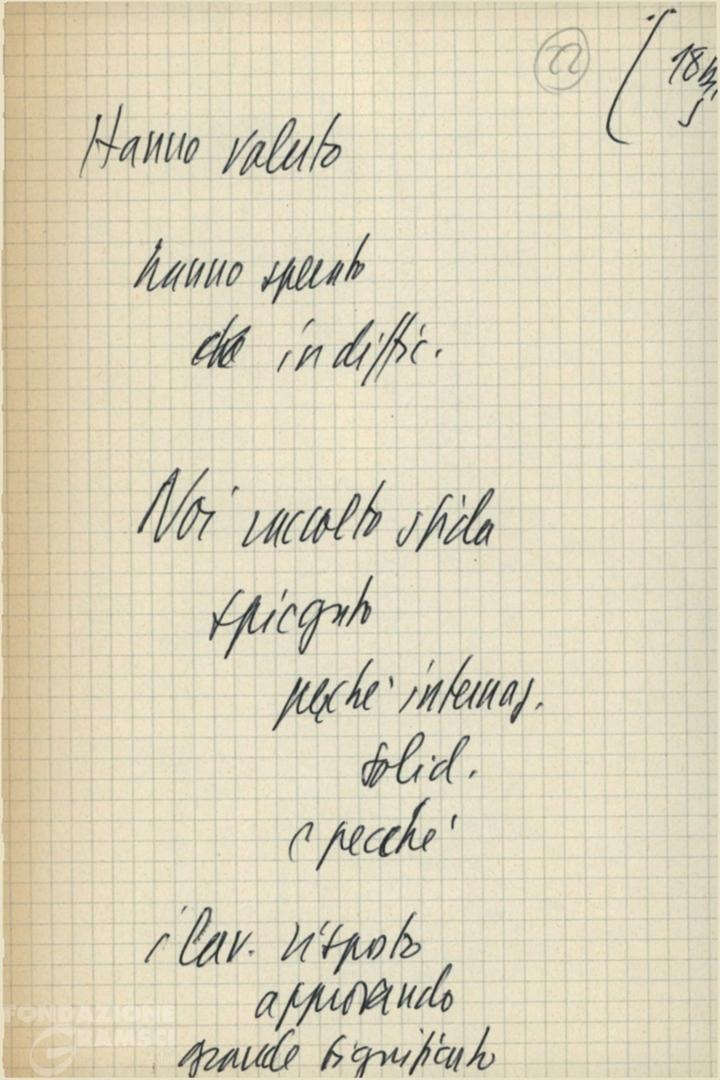 22
18
Hanno voluto
hanno sperato
in diffic.
Noi raccolto sfida
spiegato
perché internaz.
solid.
e perché
i lav. risposto
approvando
grande significato
FONDAZION
GRAMS